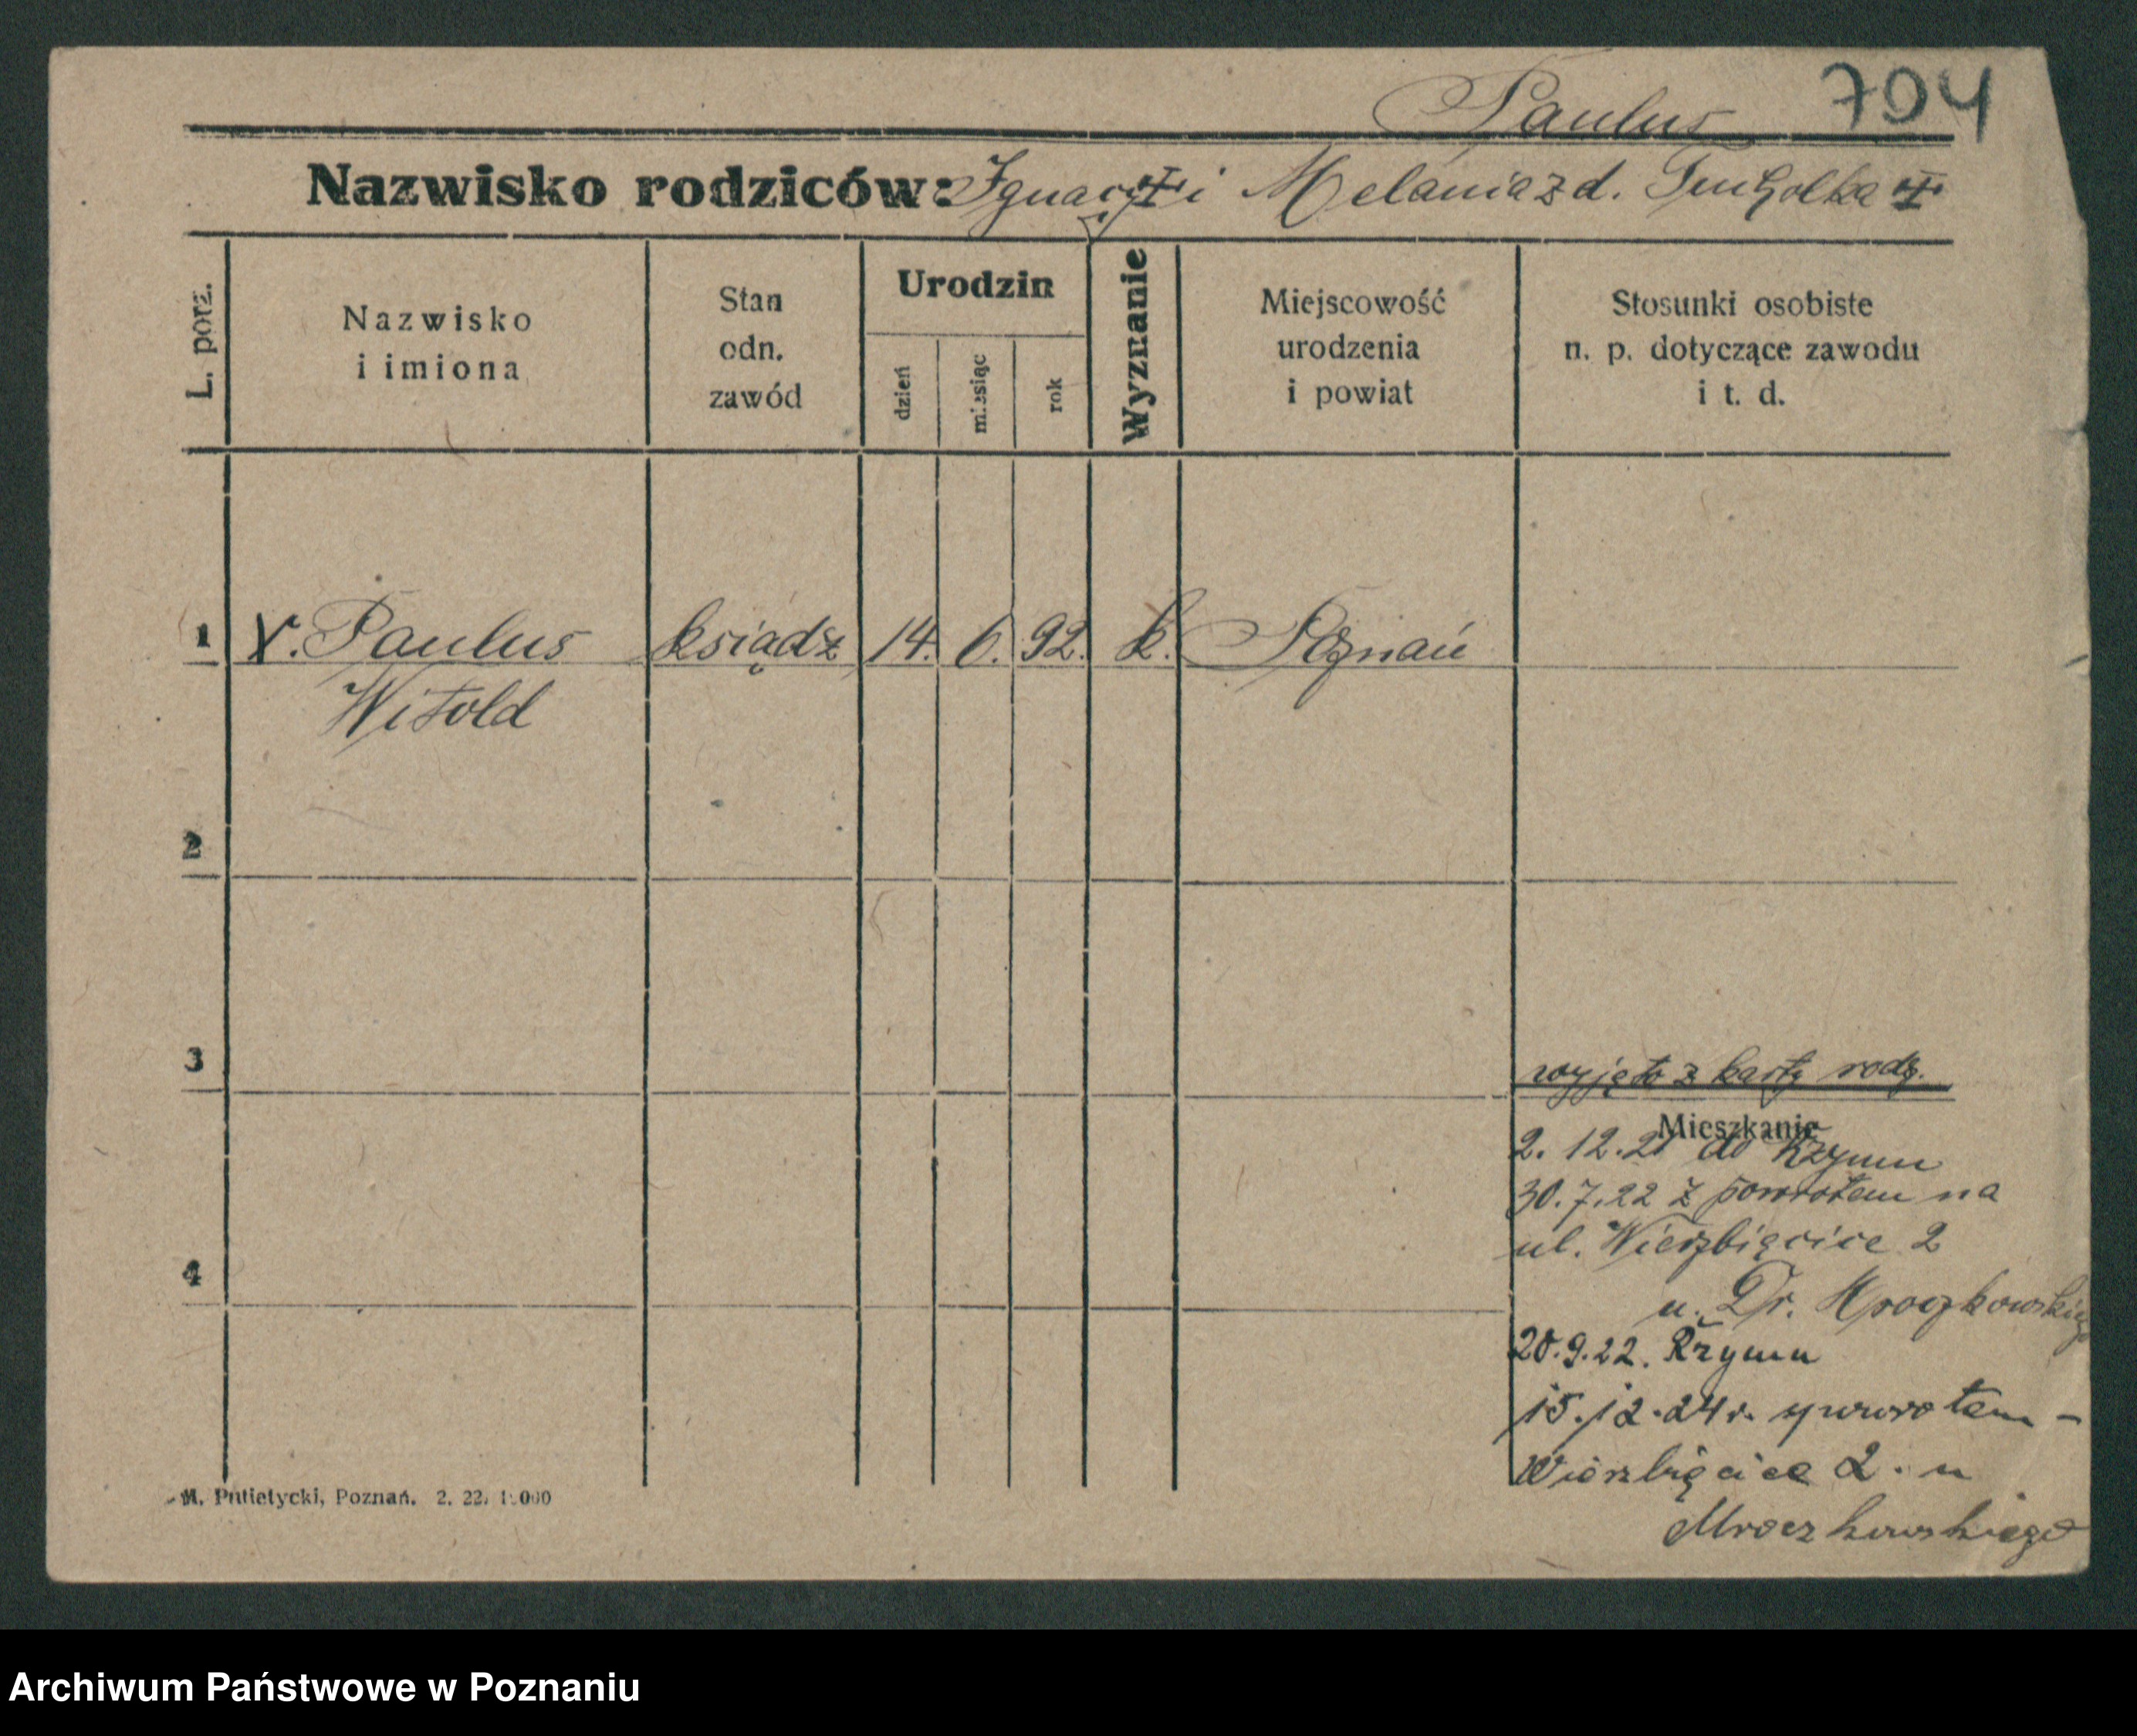 Paulus 704
Nazwisko rodziców: Ignacy + i Melania z d. Tucholka +
L. porz.
Nazwisko
i imiona
Stan
odn.
zawód
Urodzin
dzień
miesiąc
rok
Wyznanie
Miejscowość
urodzenia
i powiat
Stosunki osobiste
n. p. dotyczące zawodu
i t. d.
1 X. Paulus ksiądz 14. 6. 92. k. Poznań
Witold
2
3
wyjęto z karty rodz.
Mieszkanie
2. 12. 21 do Rzymu
30. 7. 22 z powrotem na
ul. Wierzbięcice 2
4
u. Dr. Mroczkowskiego
20. 9. 22. Rzymu
15. 12. 24 r. z powrotem -
Wierzbięcice 2. u
Mroczkowskiego
M. Putiatycki, Poznań. 2. 22.
Archiwum Państwowe w Poznaniu